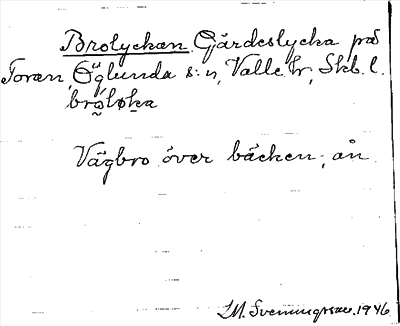 Brolyckan Gärdeslycka på
Toran, Öglunda s:n, Valle hr, Skb. l.
bro̬lo̬ka
Vägbro över bäcken, ån
L.M. Svenungsson. 1946